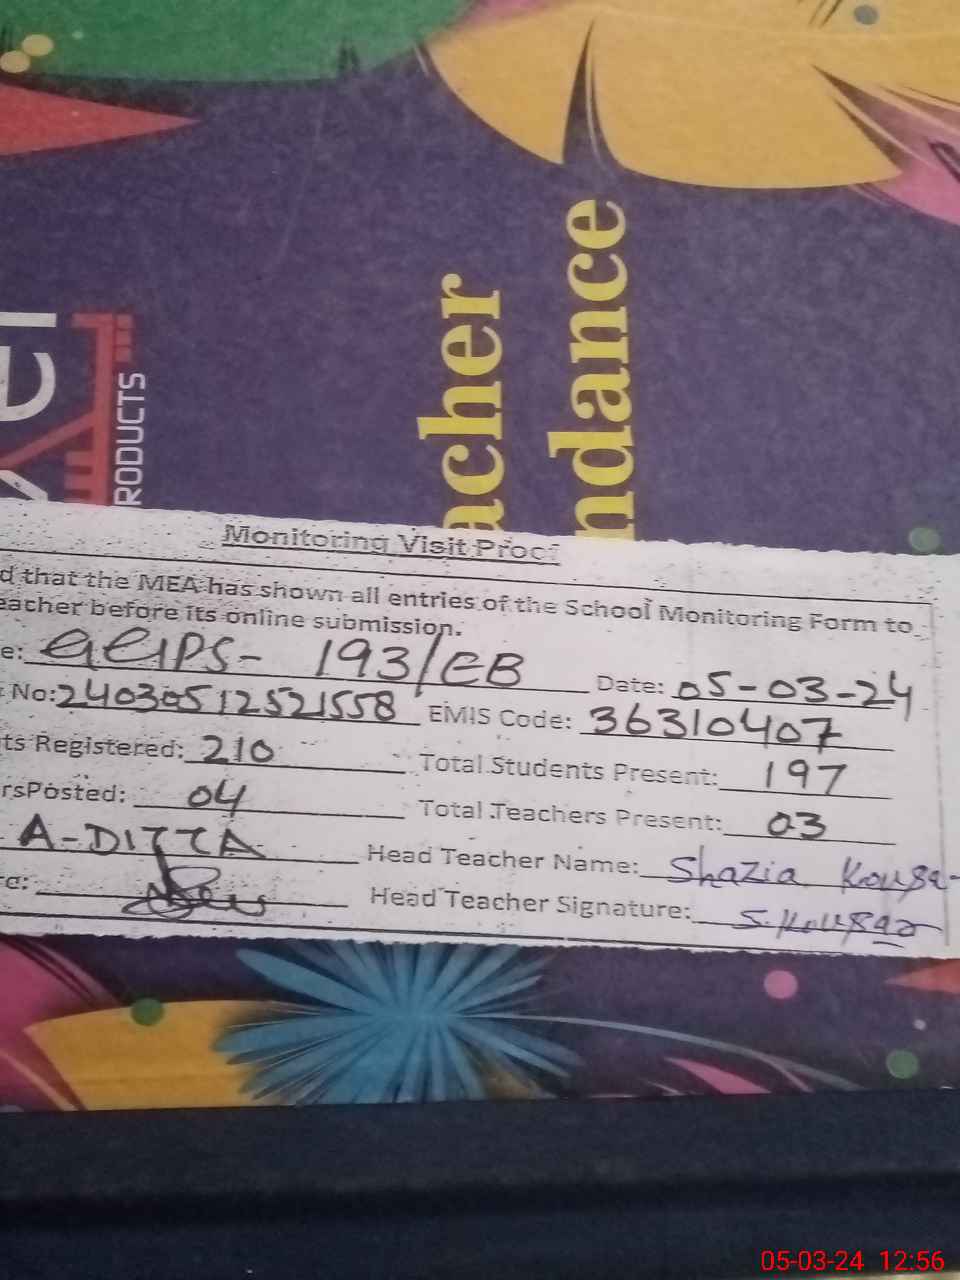 RODUCTS
acher
ndance
Monitoring Visit Proof
d that the MEA has shown all entries of the School Monitoring Form to
eacher before its online submission.
e: GEIPS- 193/EB Date: 05-03-24
No: 24030512521558 EMIS Code: 36310407
ts Registered: 210 Total Students Present: 197
rsPosted: 04 Total Teachers Present: 03
A-DITTA Head Teacher Name: Shazia Kousa
e: Head Teacher Signature: S.Kousar
05-03-24 12:56